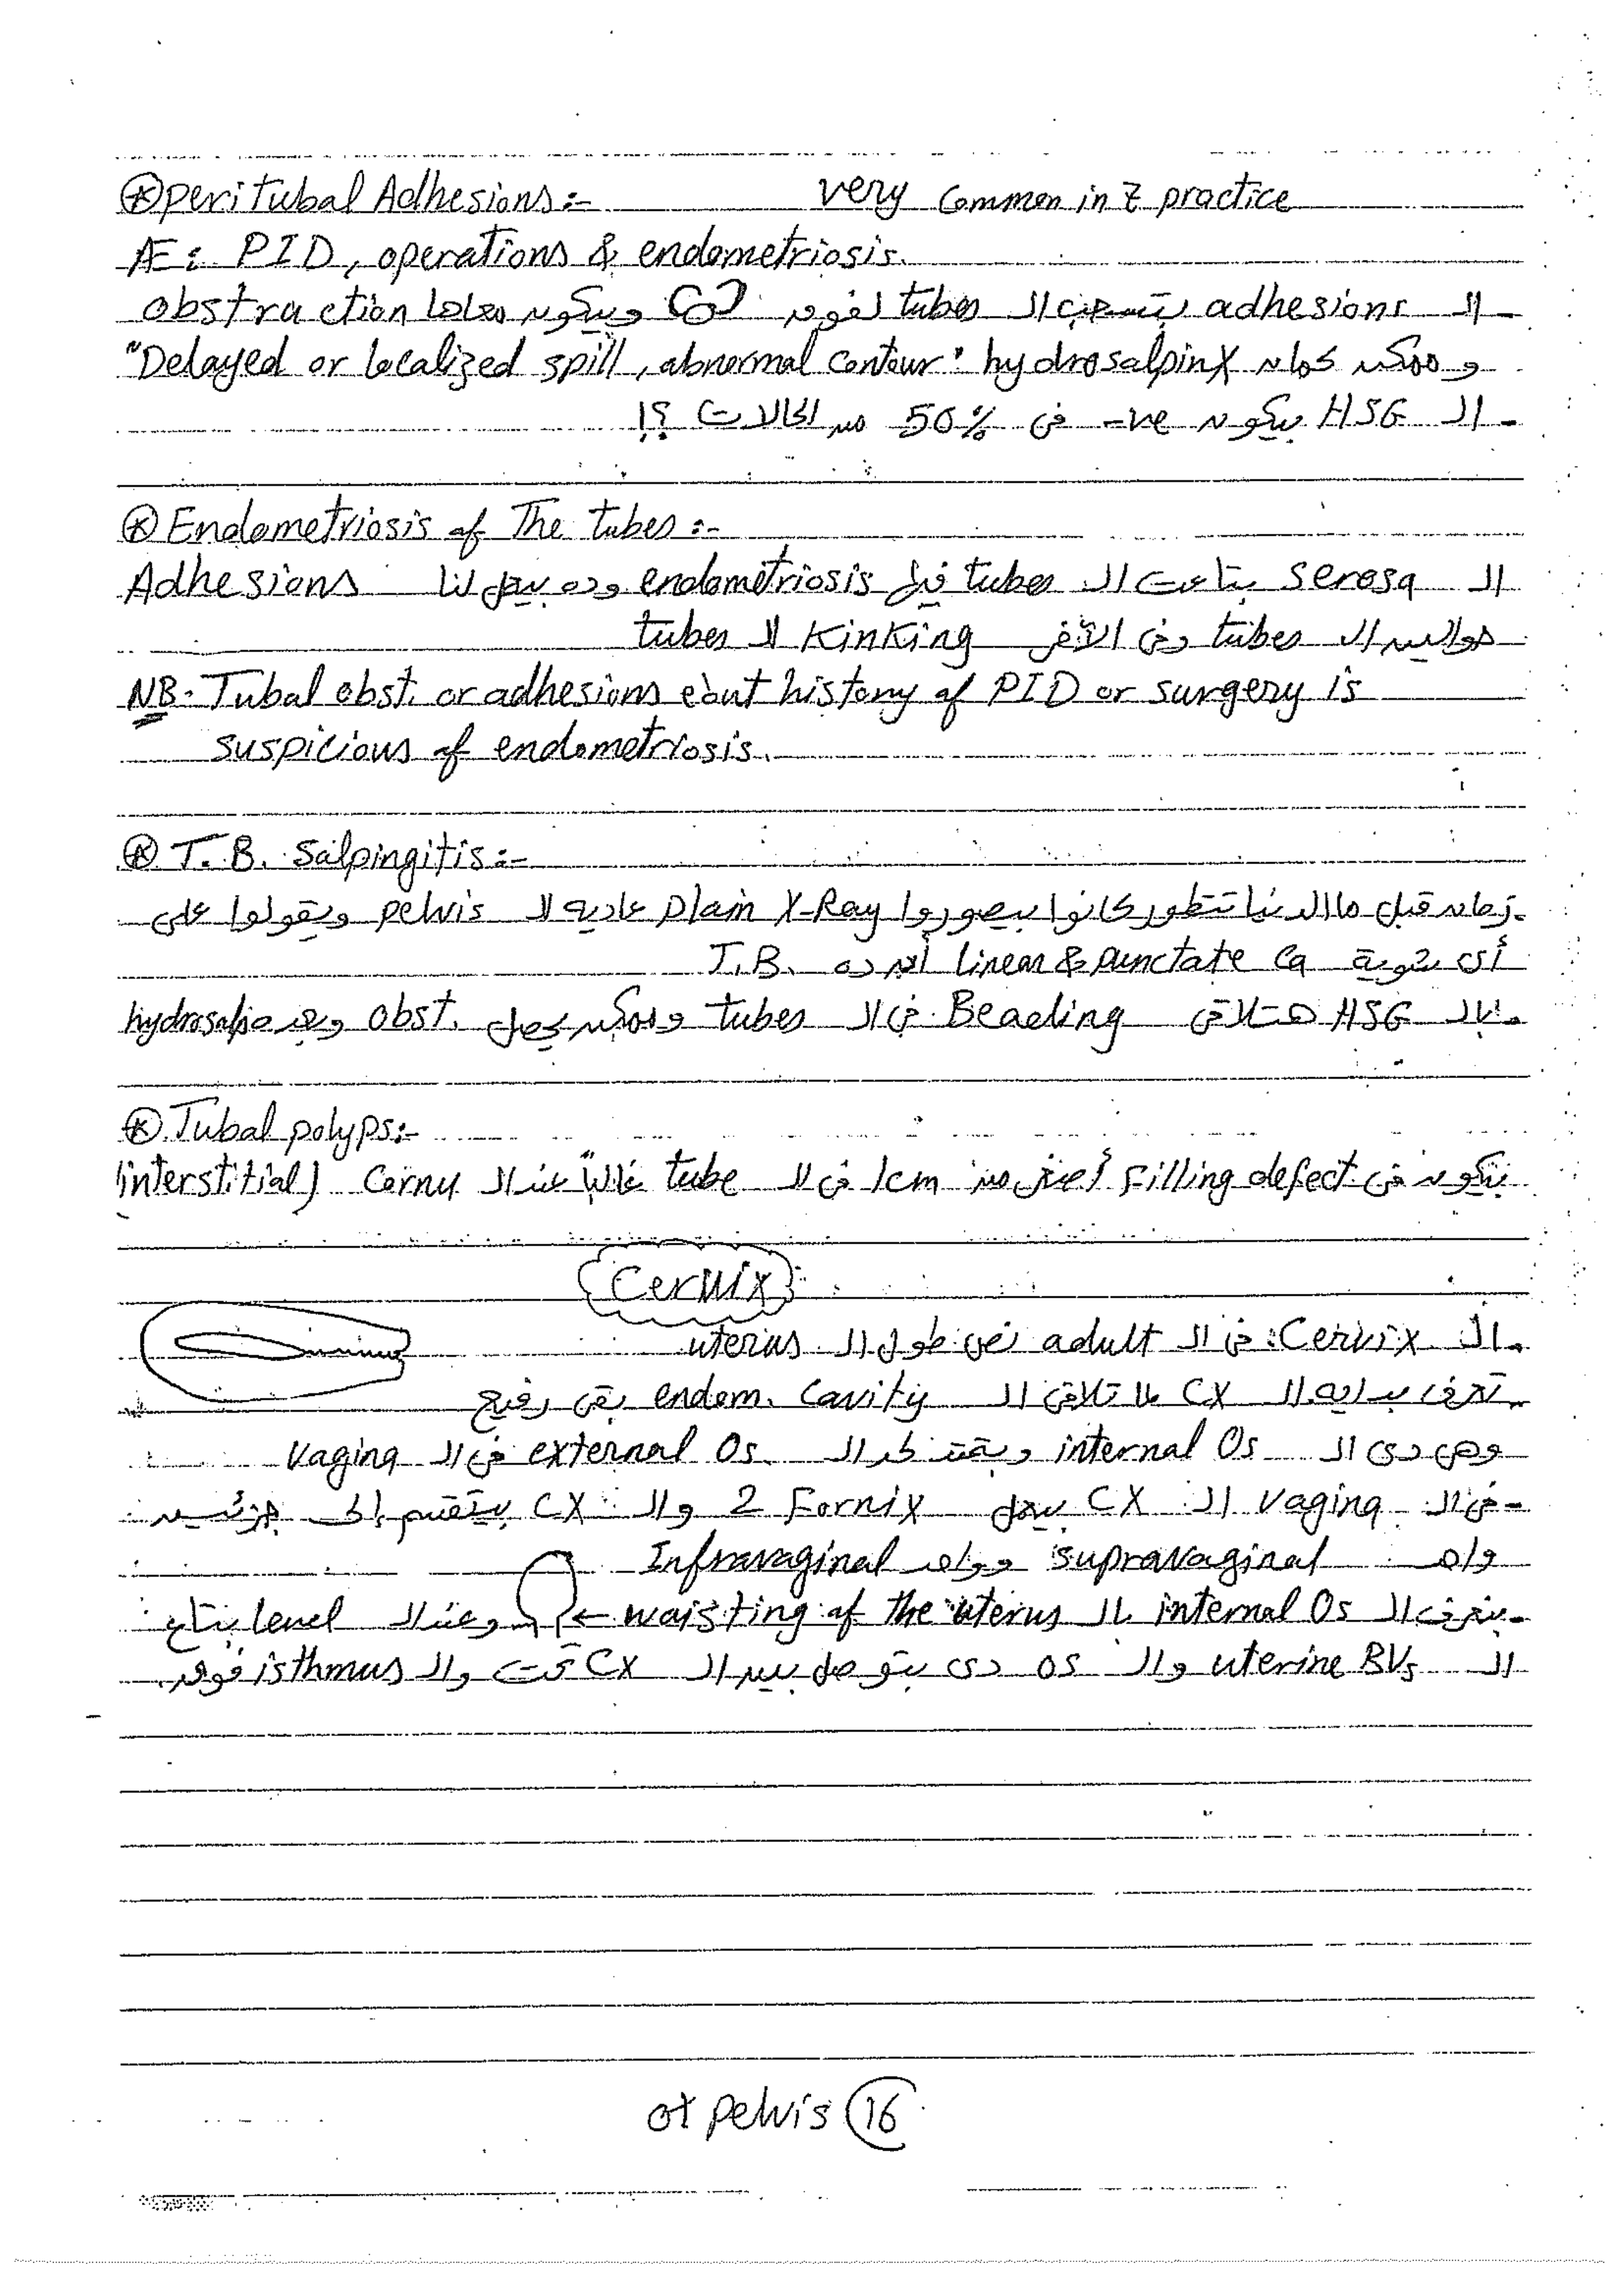 ⊛ Peritubal Adhesions:- very Common in Z practice
Æ: PID, operations & endometriosis.
- الـ adhesions بتسحب الـ tubes لفوق وبيكون معاها obstraction
وممكن كمان hydrosalpinx "Delayed or localized spill, abnormal contour"
- الـ HSG بيكون -ve فى 50% من الحالات ؟!
⊛ Endometriosis of The tubes:-
الـ serosa بتاعت الـ tubes فيها endometriosis وده بيعمل لنا Adhesions
حوالين الـ tubes وفى الآخر Kinking للـ tubes
NB- Tubal obst. or adhesions èout history of PID or surgery is
suspicious of endometriosis.
⊛ T.B. Salpingitis:-
- زمان قبل ما الدنيا تتطور كانوا بيصوروا Plain X-Ray عاديه للـ pelvis ويقولوا على
أى شوية linear & punctate Ca إن ده T.B.
- بالـ HSG هتلاقى Beading فى الـ tubes وممكن يحصل obst.
⊛ Tubal polyps:-
بتكون فى filling defect أصغر من 1cm فى الـ tube غالباً عند الـ Cornu (interstitial
Cervix
- الـ Cervix: فى الـ adult نص طول الـ uterus
- تعرف بداية الـ CX لما تلاقى الـ endom. Cavity بقى رفيع
وهى دى الـ internal Os وبقت لحد الـ external Os فى الـ vagina
- فى الـ vagina الـ CX بيعمل 2 Fornix والـ CX بيتقسم إلى جزئين
واحد supravaginal وواحد Infravaginal
- بنعرف الـ internal Os بالـ waisting of the uterus ← وعند الـ level بتاع
الـ uterine BVs والـ os دى بتوصل بين الـ CX تحت والـ isthmus فوق.
pelvis 16